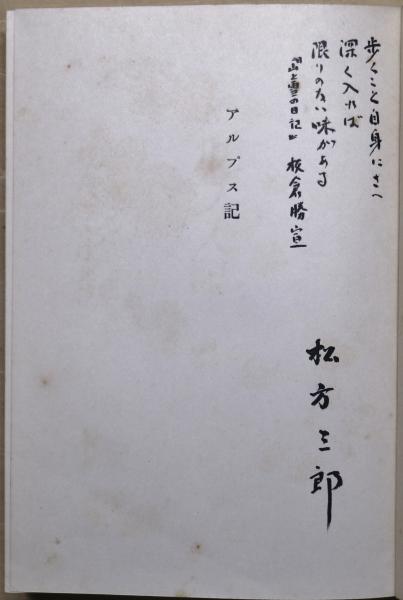 歩くこと自身にさへ
深く入れば
限りのない味がある
『山と雪の日記』 板倉勝宣
アルプス記
松方三郎